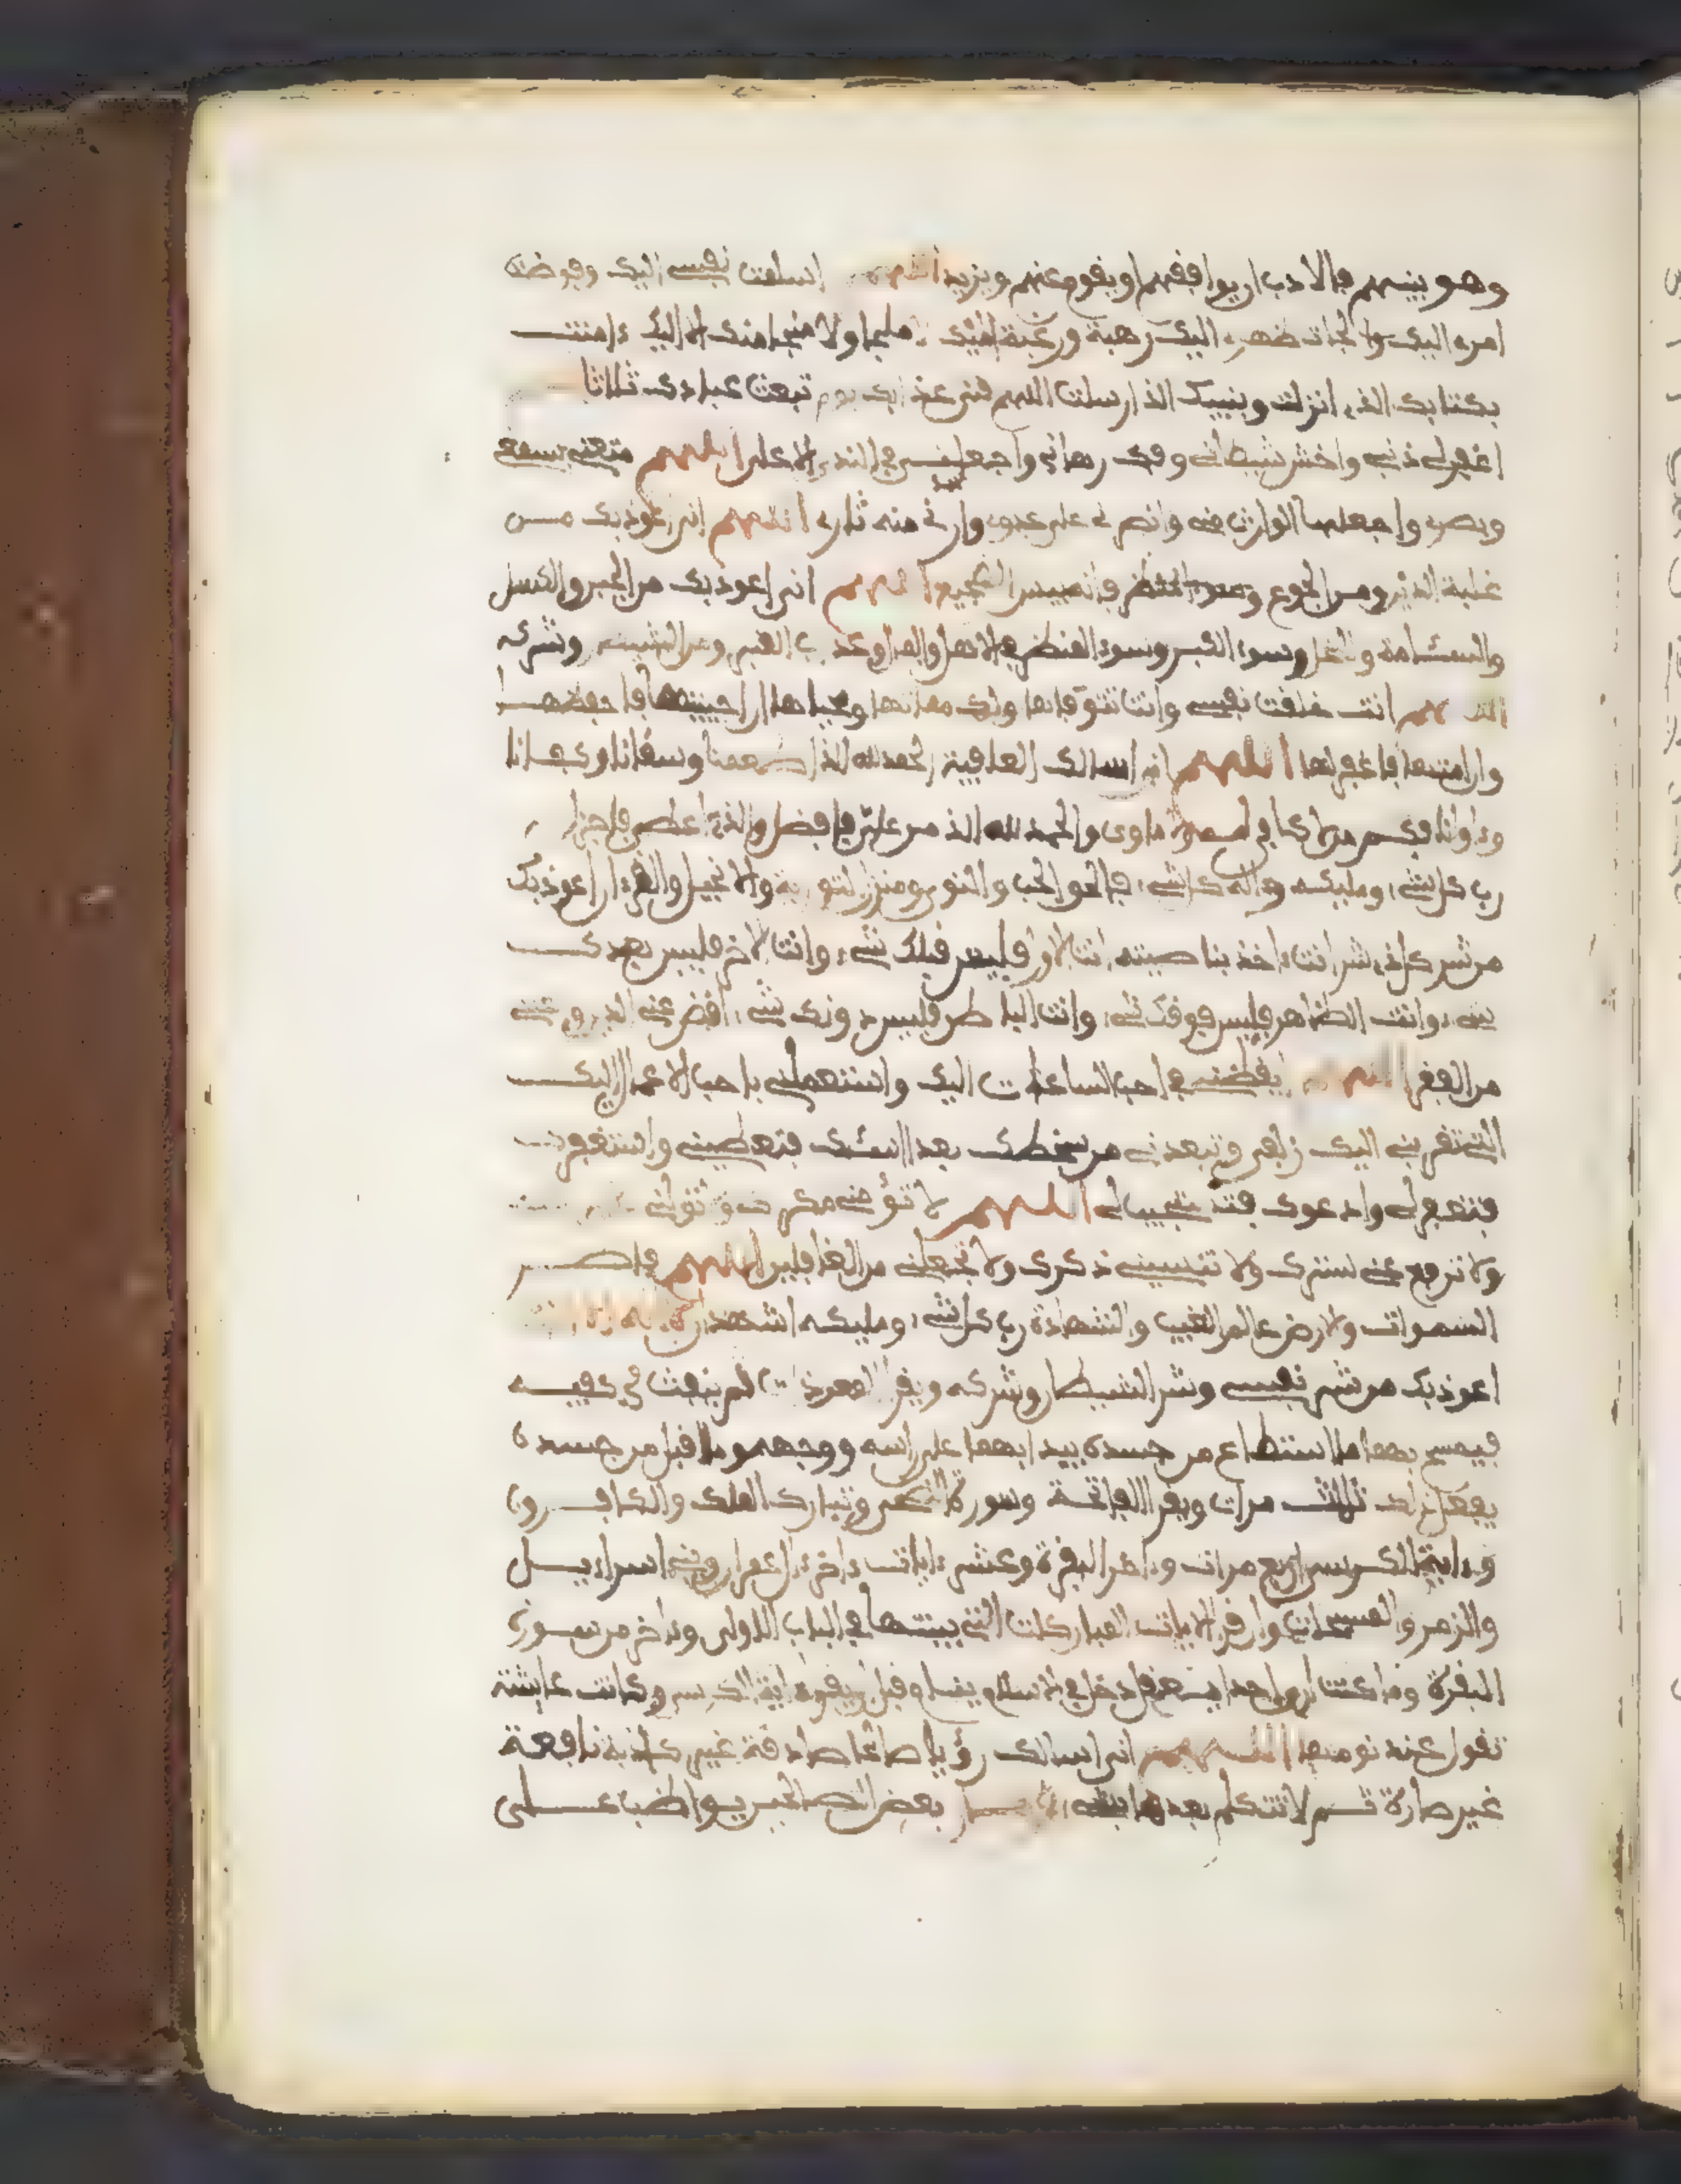 وهو بينهم في الادب او يوافقهم او يقوم عنهم ويزيد اللهم اسلمت نفسي اليك وفوضت
امري اليك والجات ظهري اليك رهبة ورغبة اليك لا ملجا ولا منجا منك الا اليك ءامنت
بكتابك الذي انزلت وبنبيك الذي ارسلت اللهم قني عذابك يوم تبعث عبادك ثلاثا
اغفر لي ذنبي واخس شيطاني وفك رهاني واجعلني في الندي الاعلى اللهم متعني بسمعي
وبصري واجعلهما الوارث مني وانصرني على عدوي وارني منه ثاري اللهم اني اعوذ بك مــن
غلبة الدين ومن الجوع فانه بيس الضجيع اللهم اني اعوذ بك من الجبن والكسل
والسئامة والبخل وسوء الكبر وسوء المنظر في الاهل والمال وعذاب القبر ومن الشيطان وشركه
اللهم انت خلقت نفسي وانت تتوفاها ولك مماتها ومحياها ان احييتها فاحفظهــا
وان امتها فاغفر لها اللهم اني اسالك العافية الحمد لله الذي اطعمنا وسقانا وكفــانا
وءاوانا فكم ممن لا كافي له ولا ماوى والحمد لله الذي من علي فافضل والذي اعطاني فاجزل
رب كل شيء ومليكه واله كل شيء فالق الحب والنوى ومنزل التورية والانجيل والقرءان اعوذ بك
من شر كل ذي شر انت ءاخذ بناصيته انت الاول فليس قبلك شيء وانت الاخر فليس بعدك
شيء وانت الظاهر فليس فوقك شيء وانت الباطن فليس دونك شيء اقض عني الدين واغنني
من الفقر اللهم ايقظني في احب الساعات اليك واستعملني باحب الاعمال اليك
التي تقربني اليك زلفى وتبعدني من سخطك بعدا اسئلك فتعطيني واستغفرك
فتغفر لي وادعوك فتستجيب لي اللهم لا تؤمني مكرك ولا تولني غيرك
ولا ترفع عني سترك ولا تنسيني ذكرك ولا تجعلني من الغافلين اللهم فاطــر
السموات والارض عالم الغيب والشهادة رب كل شيء ومليكه اشهد ان لا اله الا انت
اعوذ بك من شر نفسي وشر الشيطان وشركه ويقرا المعوذات ثم ينفث في كفيــه
فيمسح بهما ما استطاع من جسده يبدا بهما على راسه ووجهه وما اقبل من جسده
يفعل ذلك ثلاث مرات ويقرا الفاتحة وسورة وتبارك الملك والكافــرون
وءاية الكرسي اربع مرات وءاخر البقرة وعشر ءايات ءاخر ءال عمران وبني اسراءيــل
والزمر والمسبحات وان قرا الايات المباركات التي بينتها في الباب الاولى وءاخر من سورة
البقرة وما كنت ارى احدا يعقل دخل في الاسلام ينام قبل ان يقرا ءاية الكرسي وكانت عايشة
تقول عند نومها اللهم اني اسالك رؤيا صالحة صادقة غير كاذبة نافعة
غير ضارة ثم لا تتكلم بعدها بشيء بعض الصالحين يواظب عــلى